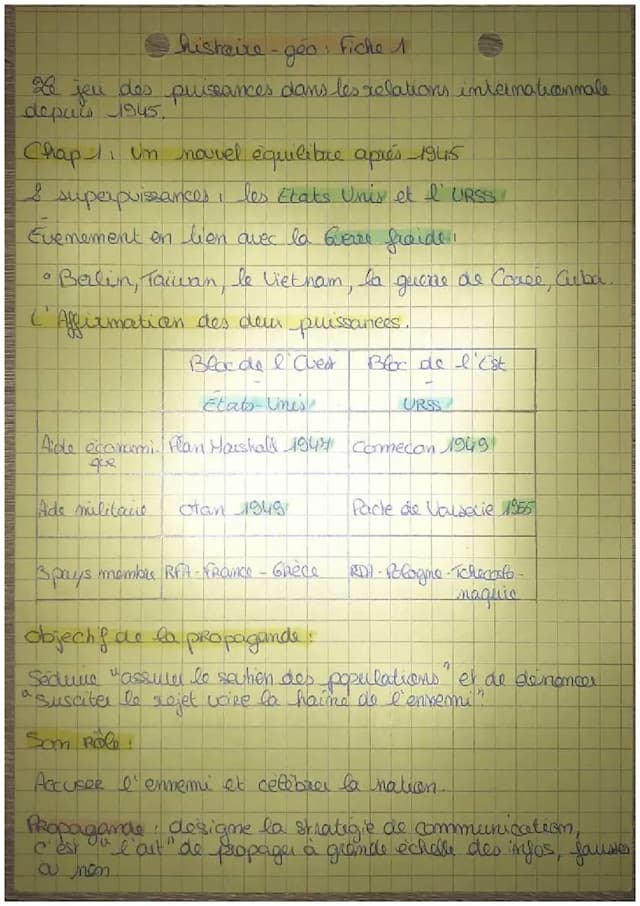 histoire - géo : Fiche 1
Le jeu des puissances dans les relations internationnale
depuis 1945.
Chap 1 : Un nouvel équilibre après 1945
2 superpuissances : les Etats Unis et l'URSS
Évènement en lien avec la Guerre froide :
• Berlin, Taïwan, le Vietnam, la guerre de Corée, Cuba.
L'Affirmation des deux puissances.
Bloc de l'Ouest
Bloc de l'Est
-
-
États-Unis
URSS
Aide économi-
que
Plan Marshall 1947
Comecon 1949
Aide militaire
Otan 1949
Pacte de Varsovie 1955
3 pays membre
RFA - France - Grèce
RDA - Pologne - Tchecoslo-
vaquie
Objectif de la propagande :
Séduire "assurer le soutien des populations" et de dénoncer
"susciter le rejet voire la haine de l'ennemi".
Son Rôle :
Accuser l'ennemi et célébrer la nation.
Propagande : désigne la stratégie de communication,
c'est "l'art" de propager à grande échelle des infos, fausses
ou non.